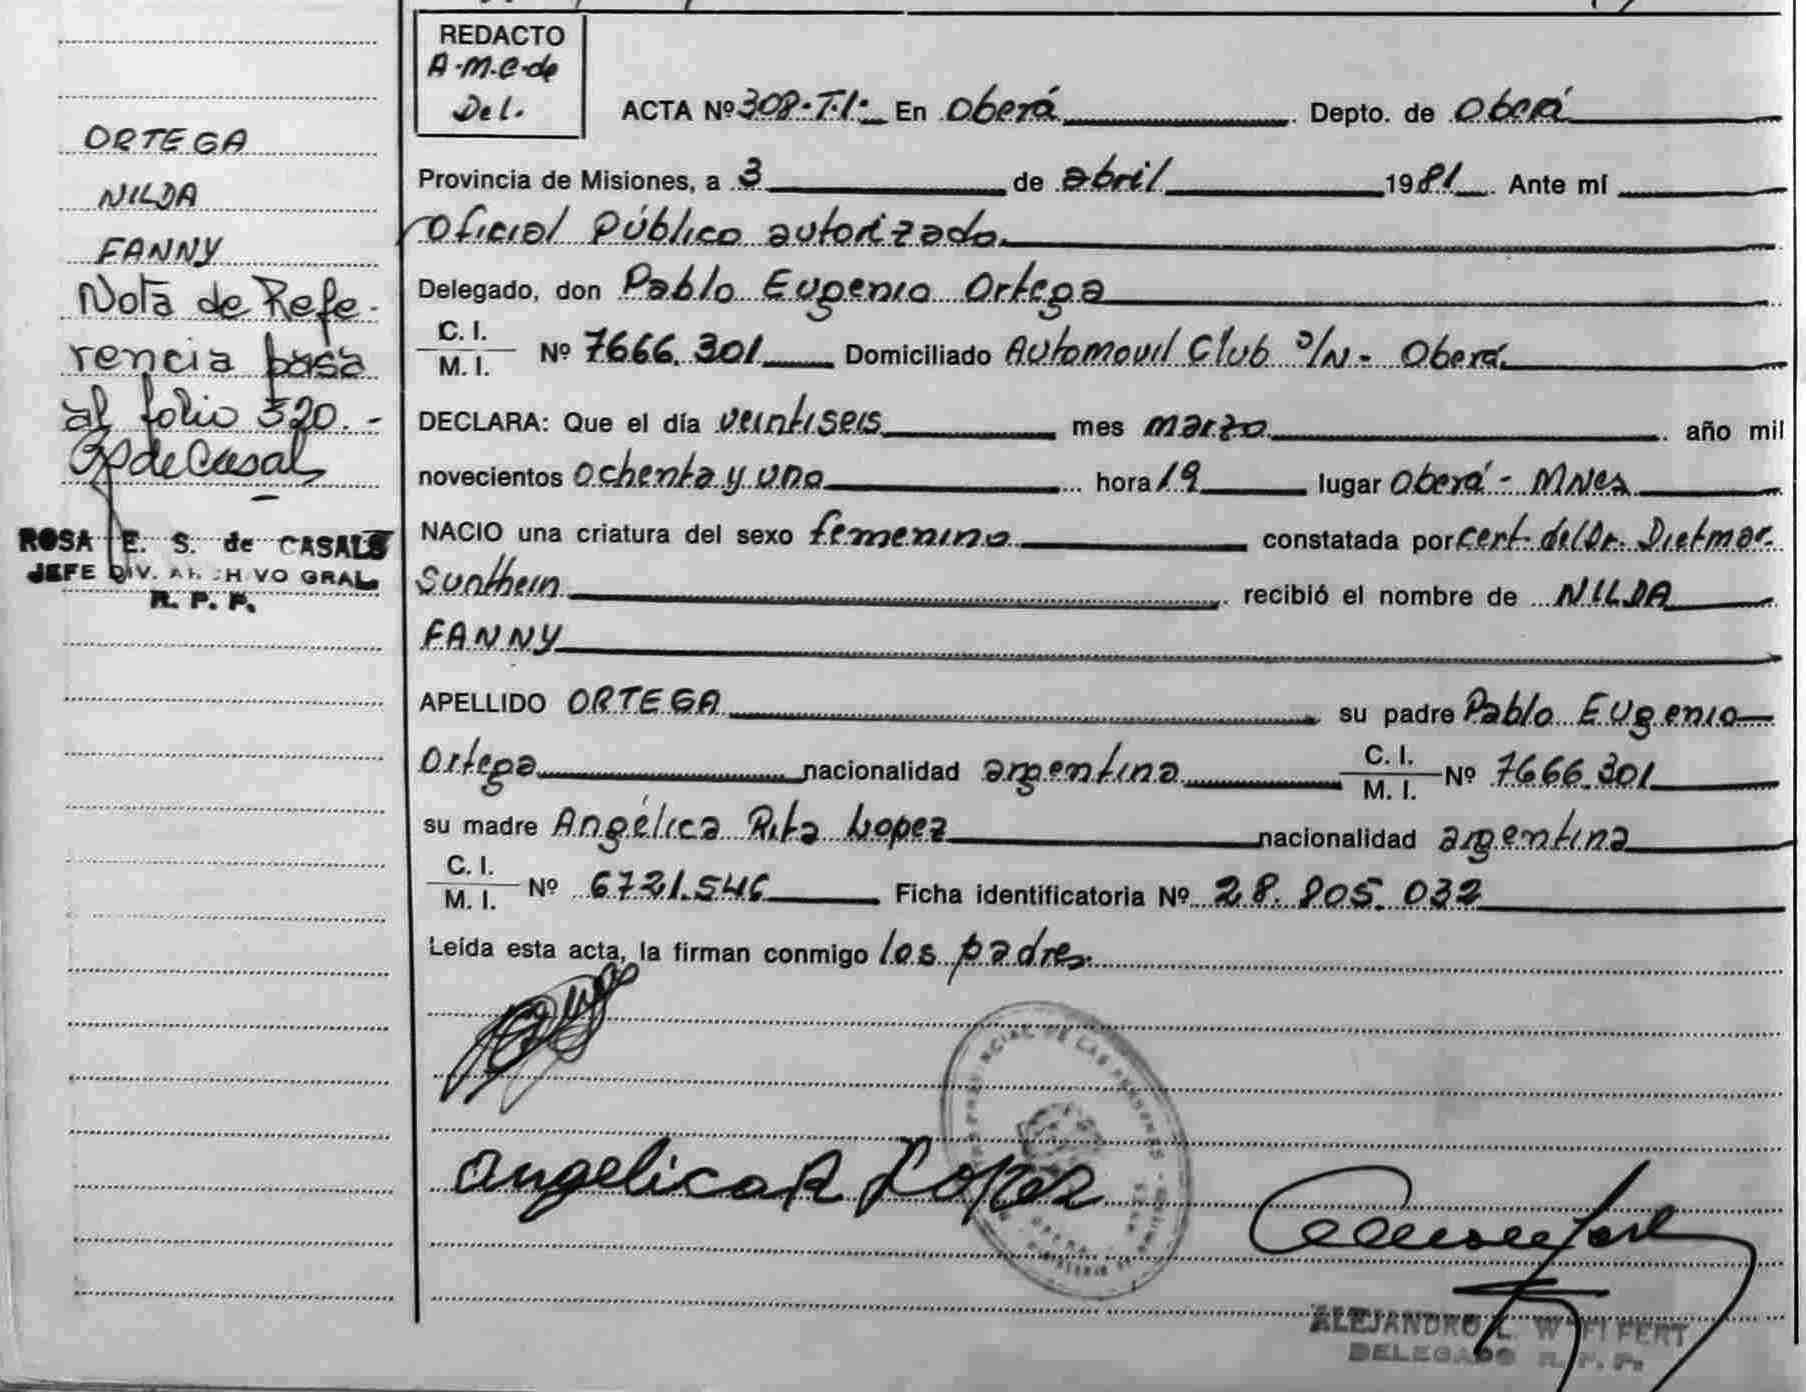 ORTEGA
NILDA
FANNY
Nota de Refe-
rencia pasa
al folio 320.-
ROSA E. S. de CASALS
JEFE DIV. ARCHIVO GRAL.
R. P. P.
REDACTO
A.M.C. de
Del.
ACTA Nº 308-T.I- En Oberá Depto. de Oberá
Provincia de Misiones, a 3 de abril 1981 Ante mí
Oficial Público autorizado.
Delegado, don Pablo Eugenio Ortega
C. I.
M. I. Nº 7666.301 Domiciliado Automovil Club s/N - Oberá
DECLARA: Que el día veintiseis mes marzo. año mil
novecientos ochenta y uno hora 19 lugar Oberá - Mnes
NACIO una criatura del sexo femenino constatada por cert. del Dr. Dietmar
Sunthein recibió el nombre de NILDA
FANNY
APELLIDO ORTEGA su padre Pablo Eugenio
Ortega nacionalidad argentina C. I.
M. I. Nº 7666.301
su madre Angélica Rita Lopez nacionalidad argentina
C. I.
M. I. Nº 6721.546 Ficha identificatoria Nº 28.805.032
Leída esta acta, la firman conmigo los padres.
Angelica R Lopez
ALEJANDRO L.
DELEGADO R. P. P.